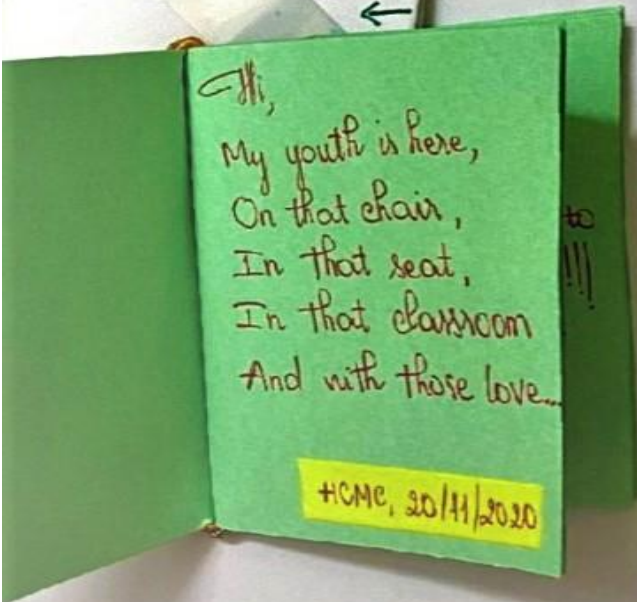 Hi,
My youth is here,
On that chair,
In that seat,
In that classroom
And with those love...
HCMC, 20/11/2020
to
!!!